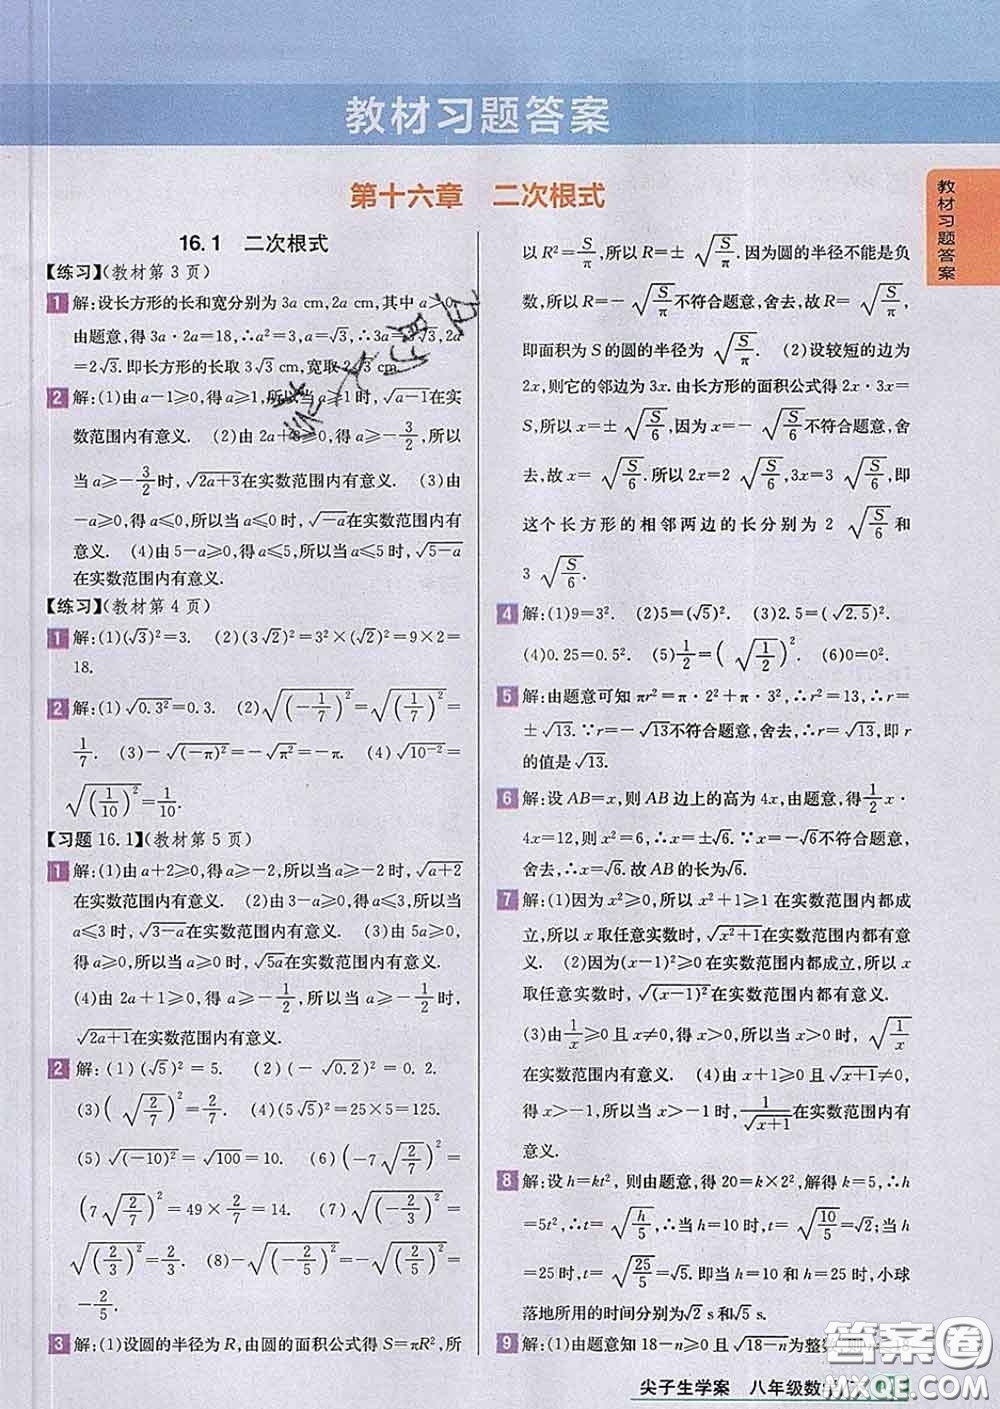 教材习题答案
第十六章 二次根式
教材习题答案
16.1 二次根式
【练习】(教材第3页)
1 解:设长方形的长和宽分别为3a cm,2a cm,其中a>0.
由题意,得3a·2a=18,∴a²=3,a=√3,∴3a=3√3,2a
=2√3.即长方形的长取3√3 cm,宽取2√3 cm.
2 解:(1)由a-1≥0,得a≥1,所以当a≥1时,√(a-1)在实
数范围内有意义. (2)由2a+3≥0,得a≥-3/2,所以
当a≥-3/2时,√(2a+3)在实数范围内有意义. (3)由
-a≥0,得a≤0,所以当a≤0时,√(-a)在实数范围内有
意义. (4)由5-a≥0,得a≤5,所以当a≤5时,√(5-a)
在实数范围内有意义.
【练习】(教材第4页)
1 解:(1)(√3)²=3. (2)(3√2)²=3²×(√2)²=9×2=
18.
2 解:(1)√(0.3²)=0.3. (2)√((-1/7)²)=√((1/7)²)=
1/7. (3)-√((-π)²)=-√(π²)=-π. (4)√(10⁻²)=
√((1/10)²)=1/10.
【习题16.1】(教材第5页)
1 解:(1)由a+2≥0,得a≥-2,所以当a≥-2时,√(a+2)
在实数范围内有意义. (2)由3-a≥0,得a≤3,所以当
a≤3时,√(3-a)在实数范围内有意义. (3)由5a≥0,
得a≥0,所以当a≥0时,√(5a)在实数范围内有意义.
(4)由2a+1≥0,得a≥-1/2,所以当a≥-1/2时,
√(2a+1)在实数范围内有意义.
2 解:(1)(√5)²=5. (2)(-√0.2)²=0.2.
(3)(√(2/7))²=2/7. (4)(5√5)²=25×5=125.
(5)√((-10)²)=√100=10. (6)(-7√(2/7))²=
(7√(2/7))²=49×2/7=14. (7)√((-2/3)²)=
√((2/3)²)=2/3. (8)-√((-2/5)²)=-√((2/5)²)=
-2/5.
3 解:(1)设圆的半径为R,由圆的面积公式得S=πR²,所
以R²=S/π,所以R=±√(S/π).因为圆的半径不能是负
数,所以R=-√(S/π)不符合题意,舍去,故R=√(S/π),
即面积为S的圆的半径为√(S/π). (2)设较短的边为
2x,则它的邻边为3x.由长方形的面积公式得2x·3x
=S,所以x=±√(S/6),因为x=-√(S/6)不符合题意,舍
去,故x=√(S/6).所以2x=2√(S/6),3x=3√(S/6),即
这个长方形的相邻两边的长分别为2√(S/6)和
3√(S/6).
4 解:(1)9=3². (2)5=(√5)². (3)2.5=(√2.5)².
(4)0.25=0.5². (5)1/2=(√(1/2))². (6)0=0².
5 解:由题意可知πr²=π·2²+π·3²,∴r²=13,∴r=
±√13.∵r=-√13不符合题意,舍去,∴r=√13,即r
的值是√13.
6 解:设AB=x,则AB边上的高为4x,由题意,得1/2x·
4x=12,则x²=6,∴x=±√6.∵x=-√6不符合题意,
舍去,∴x=√6.故AB的长为√6.
7 解:(1)因为x²≥0,所以x²+1≥1在实数范围内都成
立,所以x取任意实数时,√(x²+1)在实数范围内都有意
义. (2)因为(x-1)²≥0在实数范围内都成立,所以x
取任意实数时,√((x-1)²)在实数范围内都有意义.
(3)由1/x≥0且x≠0,得x>0,所以当x>0时,√(1/x)
在实数范围内有意义. (4)由x+1≥0且√(x+1)≠0,
得x>-1,所以当x>-1时,1/√(x+1)在实数范围内有
意义.
8 解:设h=kt²,则由题意,得20=k×2²,解得k=5,∴h
=5t²,∴t=√(h/5),∴当h=10时,t=√(10/5)=√2;当h
=25时,t=√(25/5)=√5.即当h=10和h=25时,小球
落地所用的时间分别为√2 s和√5 s.
9 解:(1)由题意知18-n≥0且√(18-n)为整数
尖子生学案 八年级数学
答案圈
MXQE